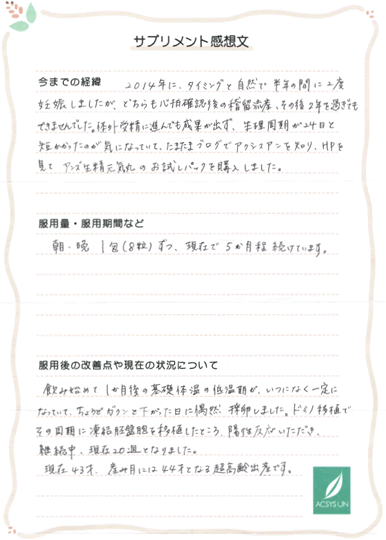 サプリメント感想文
今までの経緯
2014年に、タイミングと自然で半年の間に2度
妊娠しましたが、どちらも心拍確認後の稽留流産、その後2年を過ぎても
できませんでした。体外受精に進んでも成果が出ず、生理周期が24日と
短かかったのが気になっていて、たまたまブログでアクシスアンを知り、HPを
見て アンズ生精元気丸のお試しパックを購入しました。
服用量・服用期間など
朝・晩 1包(8粒)ずつ、現在で5か月程続けています。
服用後の改善点や現在の状況について
飲み始めて1か月後の基礎体温の低温期が、いつになく一定に
なっていて、ちょうどガクンと下がった日に偶然、採卵しました。
その周期に凍結胚盤胞を移植したところ、陽性反応いただき、
継続中、現在20週となりました。
現在43才、産み月には44才となる超高齢出産です。
ACSYS UN